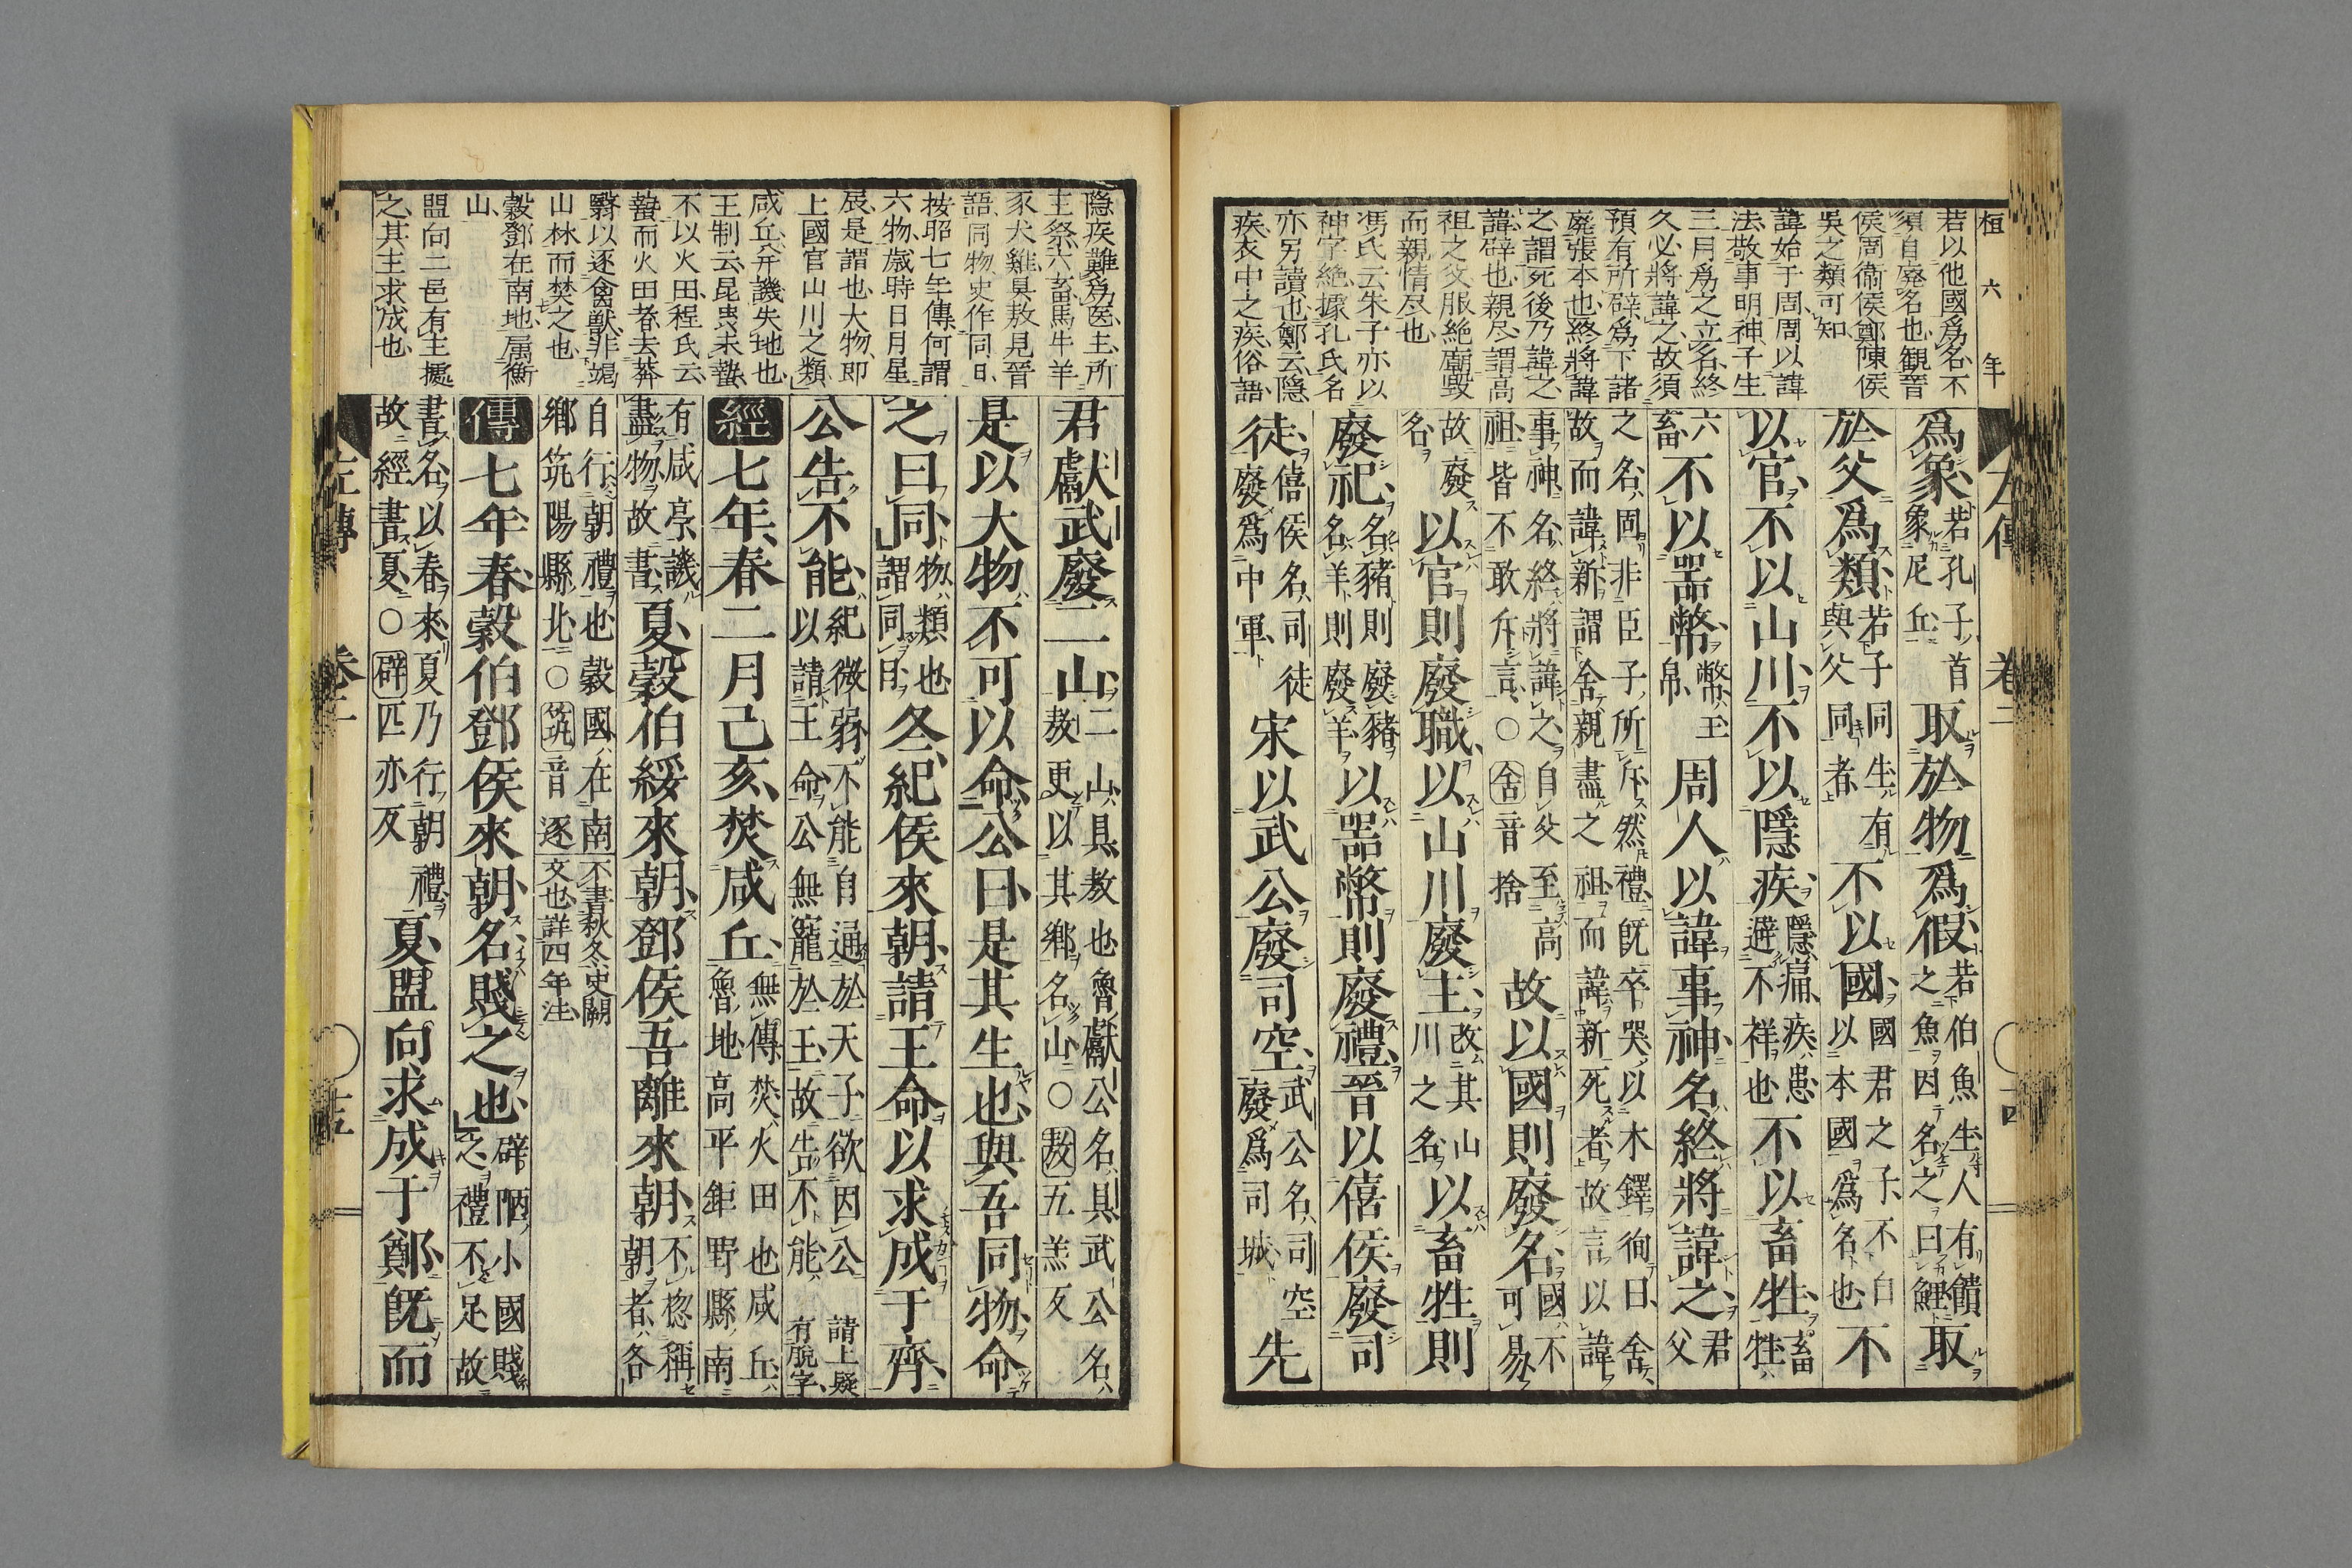 桓六年
若以他國為名不
須自廢名也観晉
侯周衞侯鄭陳侯
吳之類可知
諱始于周周以諱
法敬事明神子生
三月為之立名終
久必將諱之故須
預有所辟為下諸
廢張本也終將諱
之謂死後乃諱之
諱辟也親尽謂高
祖之父服絶廟毀
而親情尽也
馮氏云朱子亦以
神字絶據孔氏名
亦另讀也鄭云隱
疾衣中之疾俗語
為象若孔子首象尼丘取於物為假若伯魚生人有饋之魚因名之曰鯉取
於父為類若子同生有與父同者不以國國君之子不自以本國為名也不
以官不以山川不以隱疾隱痛疾患避不祥也不以畜牲畜牲
六畜不以器幣幣玉帛周人以諱事神名終將諱之君父
之名固非臣子所斥然禮既卒哭以木鐸徇曰舍故而諱新謂舍親盡之祖而諱新死者故言以諱
事神名終將諱之自父至高祖皆不敢斥言○舍音捨故以國則廢名國不可易
故廢名以官則廢職以山川廢主改其山川之名以畜牲則
廢祀名豬則廢豬名羊則廢羊以器幣則廢禮晉以僖侯廢司
徒僖侯名司徒廢為中軍宋以武公廢司空武公名司空廢為司城先
隐疾難為医主所
主祭六畜馬牛羊
豕犬雞具敖見晉
語同物史作同日
按昭七年傳何謂
六物歳時日月星
辰是謂也大物即
上國官山川之類
咸丘譏失地也
王制云昆虫未蟄
不以火田程氏云
蟄而火田者去莽
翳以逐禽獸非竭
山林而焚之也
穀鄧在南地属衡
山
盟向二邑有主
之其主求成也
君獻武廢二山二山具敖也魯獻公名具武公名敖更以其鄉名山○敖五羔反
是以大物不可以命公曰是其生也與吾同物命
之曰同物類也謂同日冬紀侯來朝請王命以求成于齊
公告不能紀微弱不能自通於天子欲因公以請王命公無寵於王故告不能請上疑有脫字
經七年春二月己亥焚咸丘無傳焚火田也咸丘魯地高平鉅野縣南
有咸亭譏盡物故書夏穀伯綏來朝鄧侯吾離來朝不揔稱朝者各
自行朝禮也穀國在南鄉筑陽縣北○筑音逐不書秋冬史闕文也詳四年注
傳七年春穀伯鄧侯來朝名賤之也辟陋小國賤之禮不足故
書名以春來夏乃行朝禮故經書夏○辟匹亦反夏盟向求成于鄭既而